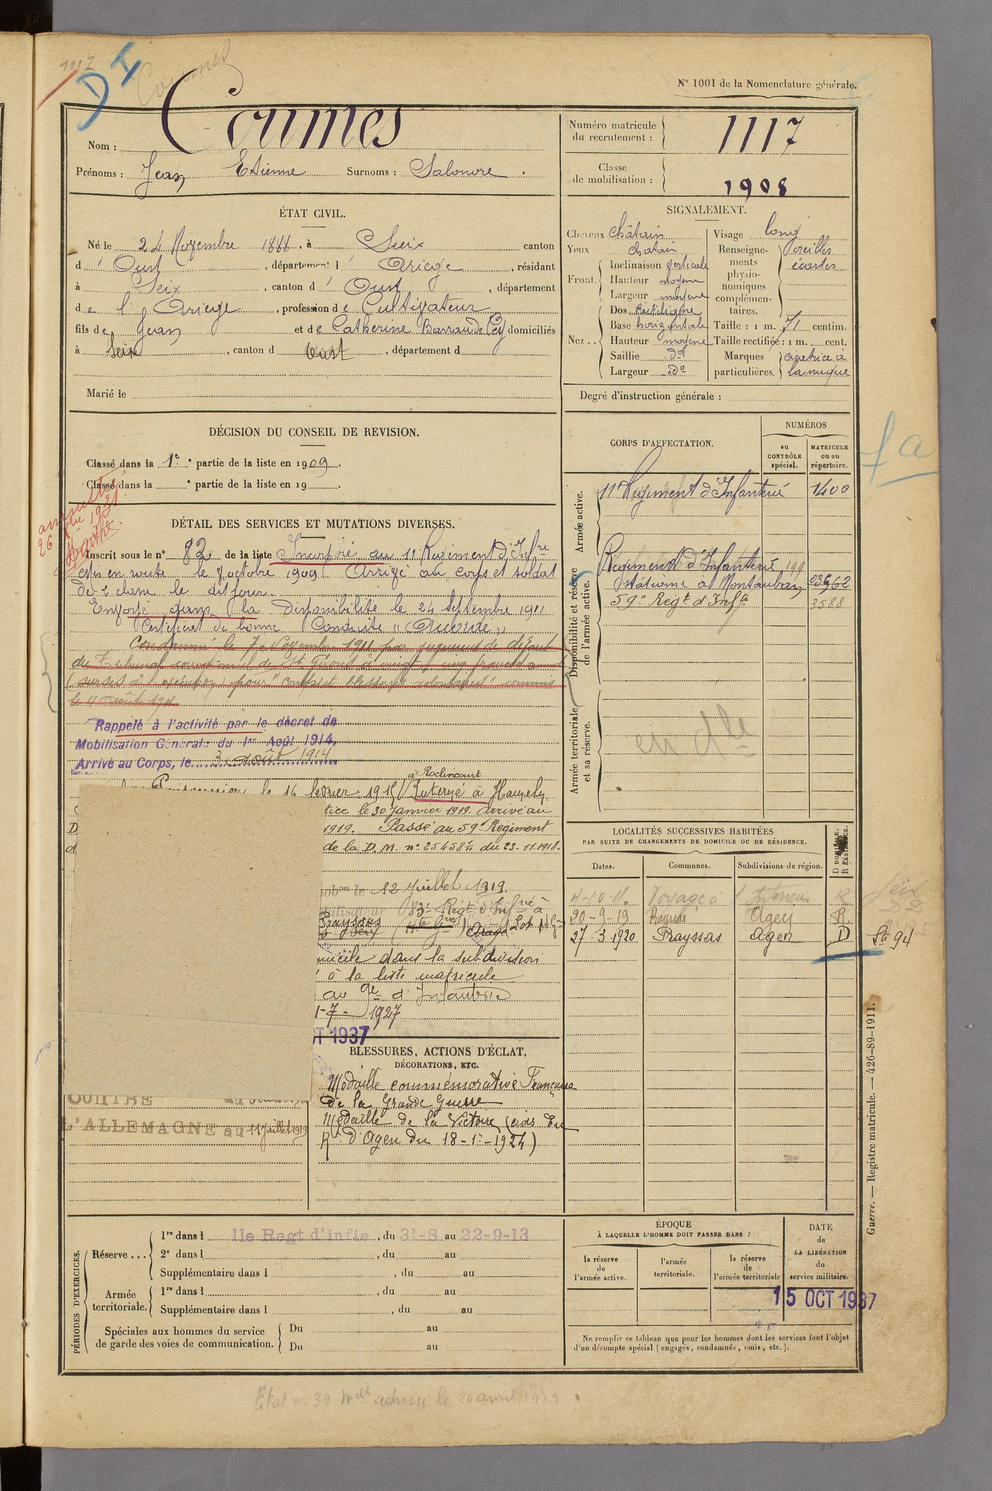 1117
DI
Coumes
N° 1001 de la Nomenclature générale.
Nom : Coumes
Prénoms : Jean Etienne Surnoms :
Numéro matricule du recrutement : 1117
Classe de mobilisation : 1908
ÉTAT CIVIL.
Né le 24 Novembre 1888, à Seix canton
d' Oust, département d Ariège, résidant
à Seix, canton d' Oust, département
de l'Ariège, profession de Cultivateur
fils de Jean et de Catherine domiciliés
à Seix, canton d Oust, département d
Marié le
SIGNALEMENT.
Cheveux châtain
Yeux chatain
Front Inclinaison verticale
Hauteur moyenne
Largeur moyenne
Nez Dos Rectiligne
Base horizontale
Hauteur moyenne
Saillie do
Largeur do
Visage long
Renseignements physionomiques complémentaires. } oreilles écartées
Taille : 1 m. 71 centim.
Taille rectifiée : 1 m. cent.
Marques particulières. } cicatrice à la nuque
Degré d'instruction générale :
DÉCISION DU CONSEIL DE REVISION.
Classé dans la 1re partie de la liste en 1909.
Classé dans la e partie de la liste en 19
DÉTAIL DES SERVICES ET MUTATIONS DIVERSES.
Inscrit sous le n° 82 de la liste Incorporé au 11e Régiment d'Infrie
et mis en route le 7 octobre 1909. Arrivé au corps et soldat
de 2e classe le dit jour.
Envoyé dans la disponibilité le 24 Septembre 1911
Certificat de bonne Conduite "Accordé"
Condamné le 7 Novembre 1911 par jugement de défaut
du Tribunal correctionnel de St Girons à vingt cinq francs d'amende
(sursis à l'exécution) pour "coups et blessures volontaires" commis
Rappelé à l'activité par le décret de
Mobilisation Générale du 1er Août 1914,
Arrivé au Corps, le 3 août 1914
à Roclincourt
le 16 février 1915 Interné à
le 30 Janvier 1919. arrivé au
1919. Passé au 59e Régiment
de la D. M. n° 25458/11 du 23.11.1918.
le 12 Juillet 1919.
83e Regt d'Infie à
Prayssas
domicile dans la subdivision
à la liste matricule
au 9e d'Infanterie
1-7-1927
CT 1937
CONTRE
L'ALLEMAGNE au 11 juillet 1919
BLESSURES, ACTIONS D'ÉCLAT,
DÉCORATIONS, ETC.
Médaille commémorative Française
de la Grande Guerre
Médaille de la Victoire (avis du
Rt d'Agen du 18-1-1924)
CORPS D'AFFECTATION.
NUMÉROS
au CONTRÔLE spécial.
MATRICULE ou au répertoire.
Armée active.
11e Régiment d'Infanterie 1400
Disponibilité et réserve de l'armée active.
Régiment d'Infanterie
stationné à Montauban 03662
59e Regt d'Infie 3588
Armée territoriale et sa réserve.
en dle
fa
LOCALITÉS SUCCESSIVES HABITÉES
PAR SUITE DE CHANGEMENTS DE DOMICILE OU DE RÉSIDENCE.
Dates. Communes. Subdivisions de région. D DOMICILE. R RÉSIDENCE.
4-10-11. Voyage à l'Intérieur R
20-9-19 Prayssas Agen R
27-3 1920 Prayssas Agen D
Seix
Guerre. — Registre matricule. — 426-89-1911.
PÉRIODES D'EXERCICES.
Réserve... 1re dans l 11e Regt d'infie, du 31-8 au 22-9-13
2e dans l , du au
Supplémentaire dans l , du au
Armée territoriale. 1re dans l , du au
Supplémentaire dans l , du au
Spéciales aux hommes du service de garde des voies de communication. Du au
Du au
ÉPOQUE
À LAQUELLE L'HOMME DOIT PASSER DANS :
la réserve de l'armée active.
l'armée territoriale.
la réserve de l'armée territoriale
DATE de LA LIBÉRATION du service militaire.
15 OCT 1937
Ne remplir ce tableau que pour les hommes dont les services font l'objet
d'un décompte spécial (engagés, condamnés, omis, etc.).